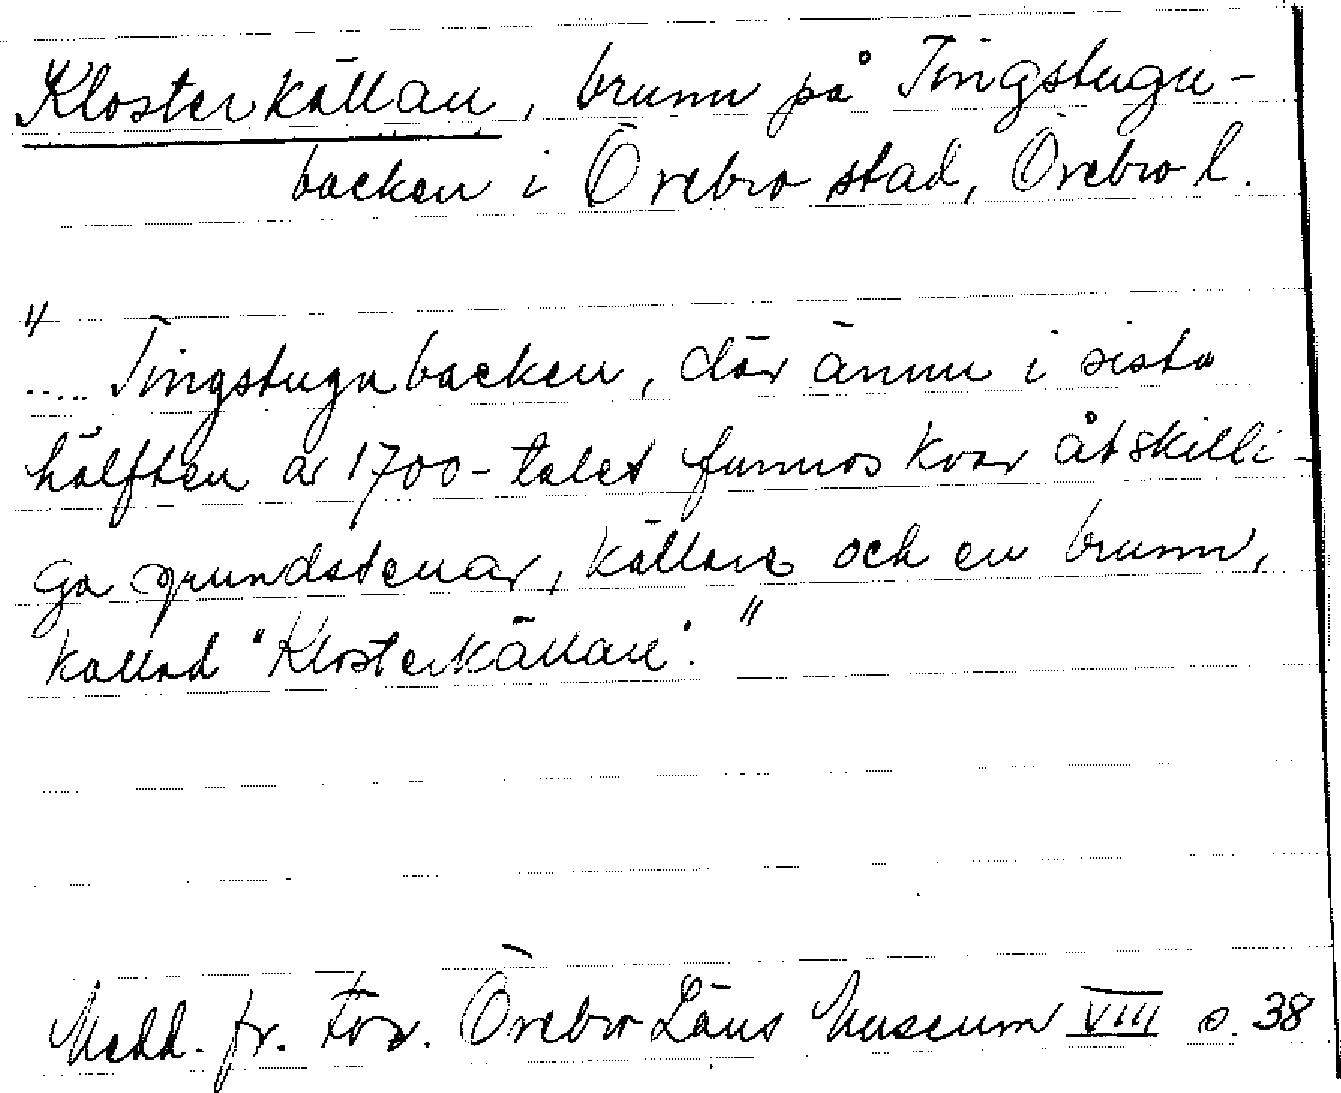 Klosterkällan, brunn på Tingstugu-
backen i Örebro stad, Örebro l.
"
..... Tingstugubacken, där ännu i sista
hälften av 1700-talet funnos kvar åtskilli-
ga grundstenar, källare och en brunn,
kallad "Klosterkällan". "
Medd. fr. För. Örebro Läns Museum VIII s. 38